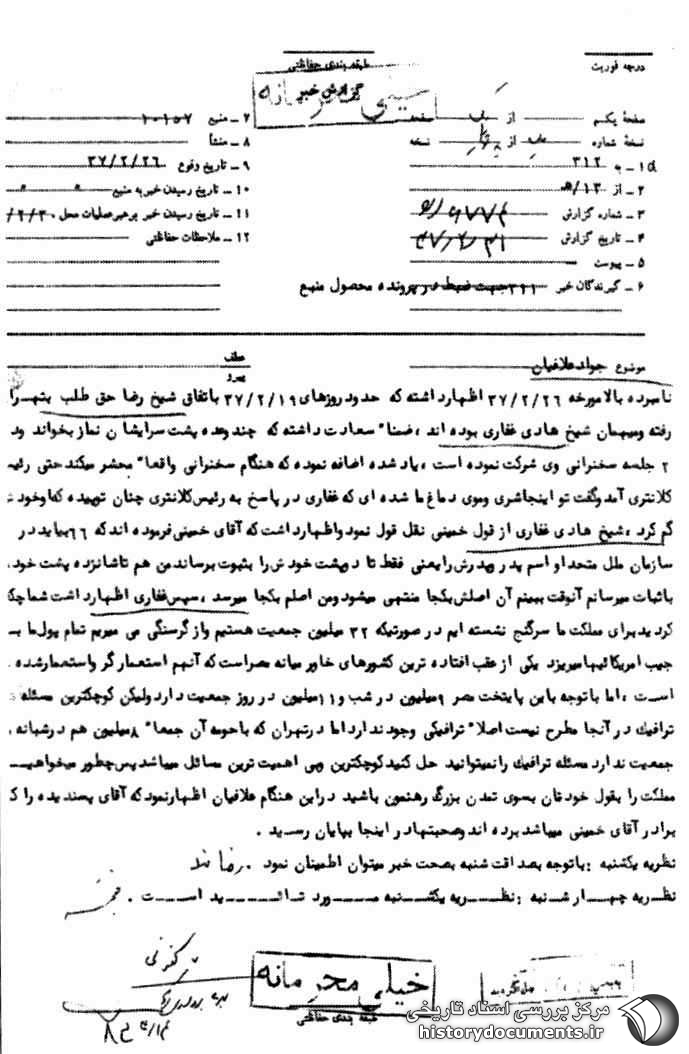 درجه فوریت
طبقه بندی حفاظتی
گزارش خبر
خیلی محرمانه
صفحهٔ یکم از یک صفحه
نسخهٔ شماره از نسخه
۱ـ به ۳۱۲
۲ـ از ۱۳/ﻫ
۳ـ شماره گزارش
۴ـ تاریخ گزارش ۳۷/۲/۳۱
۵ـ پیوست
۶ـ گیرندگان خبر ۳۱۱ جهت ضبط در پرونده محصول منبع
۷ـ منبع ۱۰۱۵۷
۸ـ منشأ
۹ـ تاریخ وقوع ۳۷/۲/۲۶
۱۰ـ تاریخ رسیدن خبر به منبع
۱۱ـ تاریخ رسیدن خبر برهبر عملیات محل /۲/۳۰
۱۲ـ ملاحظات حفاظتی
موضوع جواد علافیان
عطف
پیرو
نامبرده بالا مورخه ۳۷/۲/۲۶ اظهار داشته که حدود روزهای ۳۷/۲/۱۹ باتفاق شیخ رضا حق طلب بتهـرا
رفته ومیهمان شیخ هادی غفاری بوده اند ، ضمنا" سعادت داشته که چند وعده پشت سر ایشان نماز بخواند ودر
۲ جلسه سخنرانی وی شرکت نموده است ، یاد شده اضافه نموده که هنگام سخنرانی واقعا" محشر میکند حتی رئیس
کلانتری آمد وگفت تو اینجا شری وموی دماغ ما شده ای که غفاری در پاسخ به رئیس کلانتری چنان توپیده که او خود
گم کرد ، شیخ هادی غفاری از قول خمینی نقل قول نمود واظهار داشت که آقای خمینی فرموده اند که بیاید در
سازمان ملل متحد او اسم پدر وپدرش را یعنی فقط تا دوپشت خودش را بثبوت برساند من هم تا شانزده پشت خود
باثبات میرسانم آنوقت ببینم آن اصلش بکجا منتهی میشود ومن اصلم بکجا میرسد ، سپس غفاری اظهار داشت شما چکار
کردید برای مملکت ما سر گنج نشسته ایم در صورتیکه ۳۲ میلیون جمعیت هستیم واز گرسنگی می میریم تمام پول ما بـ
جیب امریکائیها میریزد یکی از عقب افتاده ترین کشورهای خاور میانه مصر است که آنهم استعمارگر واستعمار شده
است ، اما با توجه باین پایتخت مصر ۹ میلیون در شب و ۱۱ میلیون در روز جمعیت دارد ولیکن کوچکترین مسئله
ترافیک در آنجا مطرح نیست اصلا" ترافیکی وجود ندارد اما در تهران که با حومه آن جمعا" ۸ میلیون هم در شبانه
جمعیت ندارد مسئله ترافیک را نمیتوانید حل کنید کوچکترین وبی اهمیت ترین مسائل میباشد پس چطور میخواهیـــد
مملکت را بقول خودتان بسوی تمدن بزرگ رهنمون باشید در این هنگام علافیان اظهار نمود که آقای پسندیده را که
برادر آقای خمینی میباشد برده اند وصحبتها در اینجا بپایان رسید .
نظریه یکشنبه : باتوجه بصداقت شنبه بصحت خبر میتوان اطمینان نمود .
نظـریه چهـار شـنبه : نظــریه یکشــنبه مـــورد تـائـــید اســت .
خیلی محرمانه
طبقه بندی حفاظتی
مرکز بررسی اسناد تاریخی
historydocuments.ir